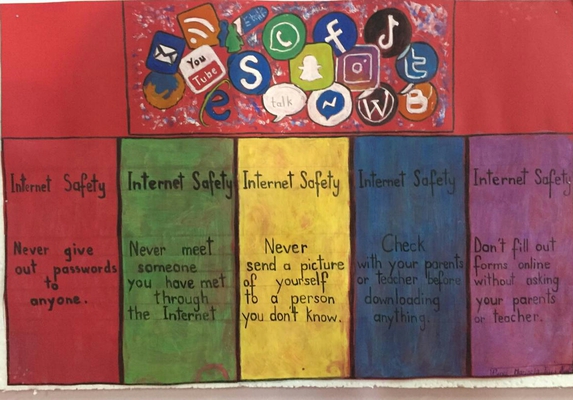 You
Tube
S
f
talk
e
W
B
Internet Safety
Never give
out passwords
to
anyone.
Internet Safety
Never meet
someone
you have met
through
the Internet
Internet Safety
Never
send a picture
of yourself
to a person
you don't know.
Internet Safety
Check
with your parents
or teacher before
downloading
anything.
Internet Safety
Don't fill out
forms online
without asking
your parents
or teacher.